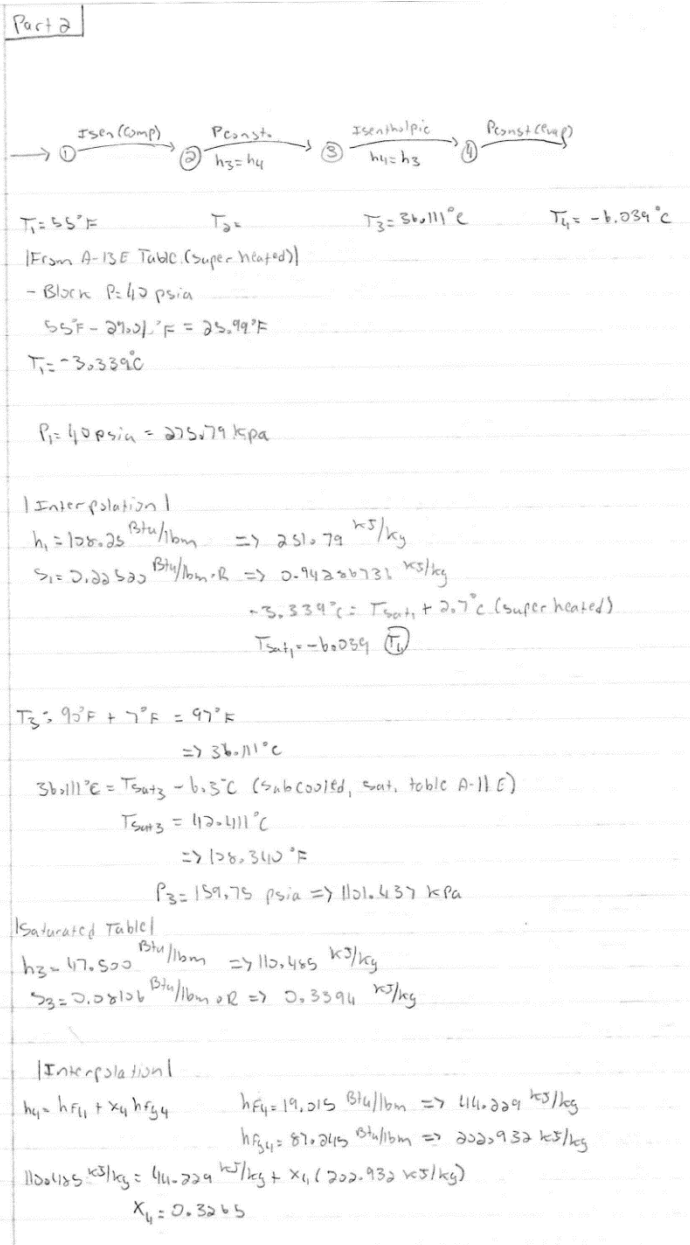 Part 2
Isen(comp) Pconst. Isenthalpic Pconst(evap)
→ ① → ② → ③ → ④ →
h3=h4 h4=h3
T1=55°F T2= T3=36.111°C T4=-6.039°C
|From A-13E Table (super heated)|
- Block P=40 psia
55°F - 29.01°F = 25.99°F
T1=-3.339°C
P1=40psia = 275.79 kpa
|Interpolation|
h1=108.25 Btu/lbm => 251.79 kJ/kg
S1=0.22520 Btu/lbm·R => 0.94286731 kJ/kg
-3.339°C = Tsat1 + 2.7°C (super heated)
Tsat1=-6.039 (T4)
T3= 90°F + 7°F = 97°F
=> 36.111°C
36.111°C = Tsat3 - 6.3°C (subcooled, sat. table A-11E)
Tsat3 = 42.411°C
=> 108.340 °F
P3=159.75 psia => 1101.437 kPa
|Saturated Table|
h3=47.500 Btu/lbm => 110.485 kJ/kg
S3=0.08106 Btu/lbm·R => 0.3394 kJ/kg
|Interpolation|
h4= hf4 + x4 hfg4 hf4=19.015 Btu/lbm => 44.229 kJ/kg
hfg4=87.245 Btu/lbm => 202.932 kJ/kg
110.485 kJ/kg = 44.229 kJ/kg + x4(202.932 kJ/kg)
X4=0.3265